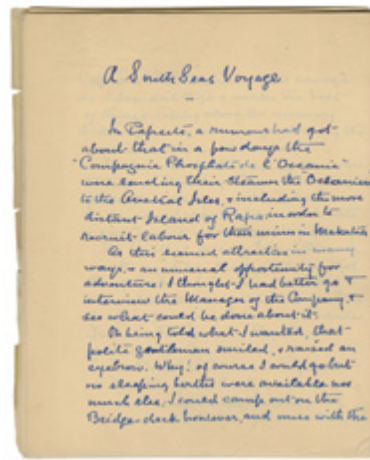 A South Seas Voyage
In Papeete, a rumour had got
about that in a few days the
"Compagnie Phosphate de l'Oceanie"
were sending their steamer the Oceanien
to the Austral Isles, & including the more
distant Island of Rapa, in order to
recruit labour for their mines in Makatea
As this seemed attractive in many
ways, & an unusual opportunity for
adventure; I thought I had better go &
interview the Manager of the Company, &
see what could be done about it.
On being told what I wanted, that
polite gentleman smiled, & raised an
eyebrow. Why! of course I could go but
no sleeping berths were available nor
much else; I could camp out on the
Bridge deck however, and mess with the